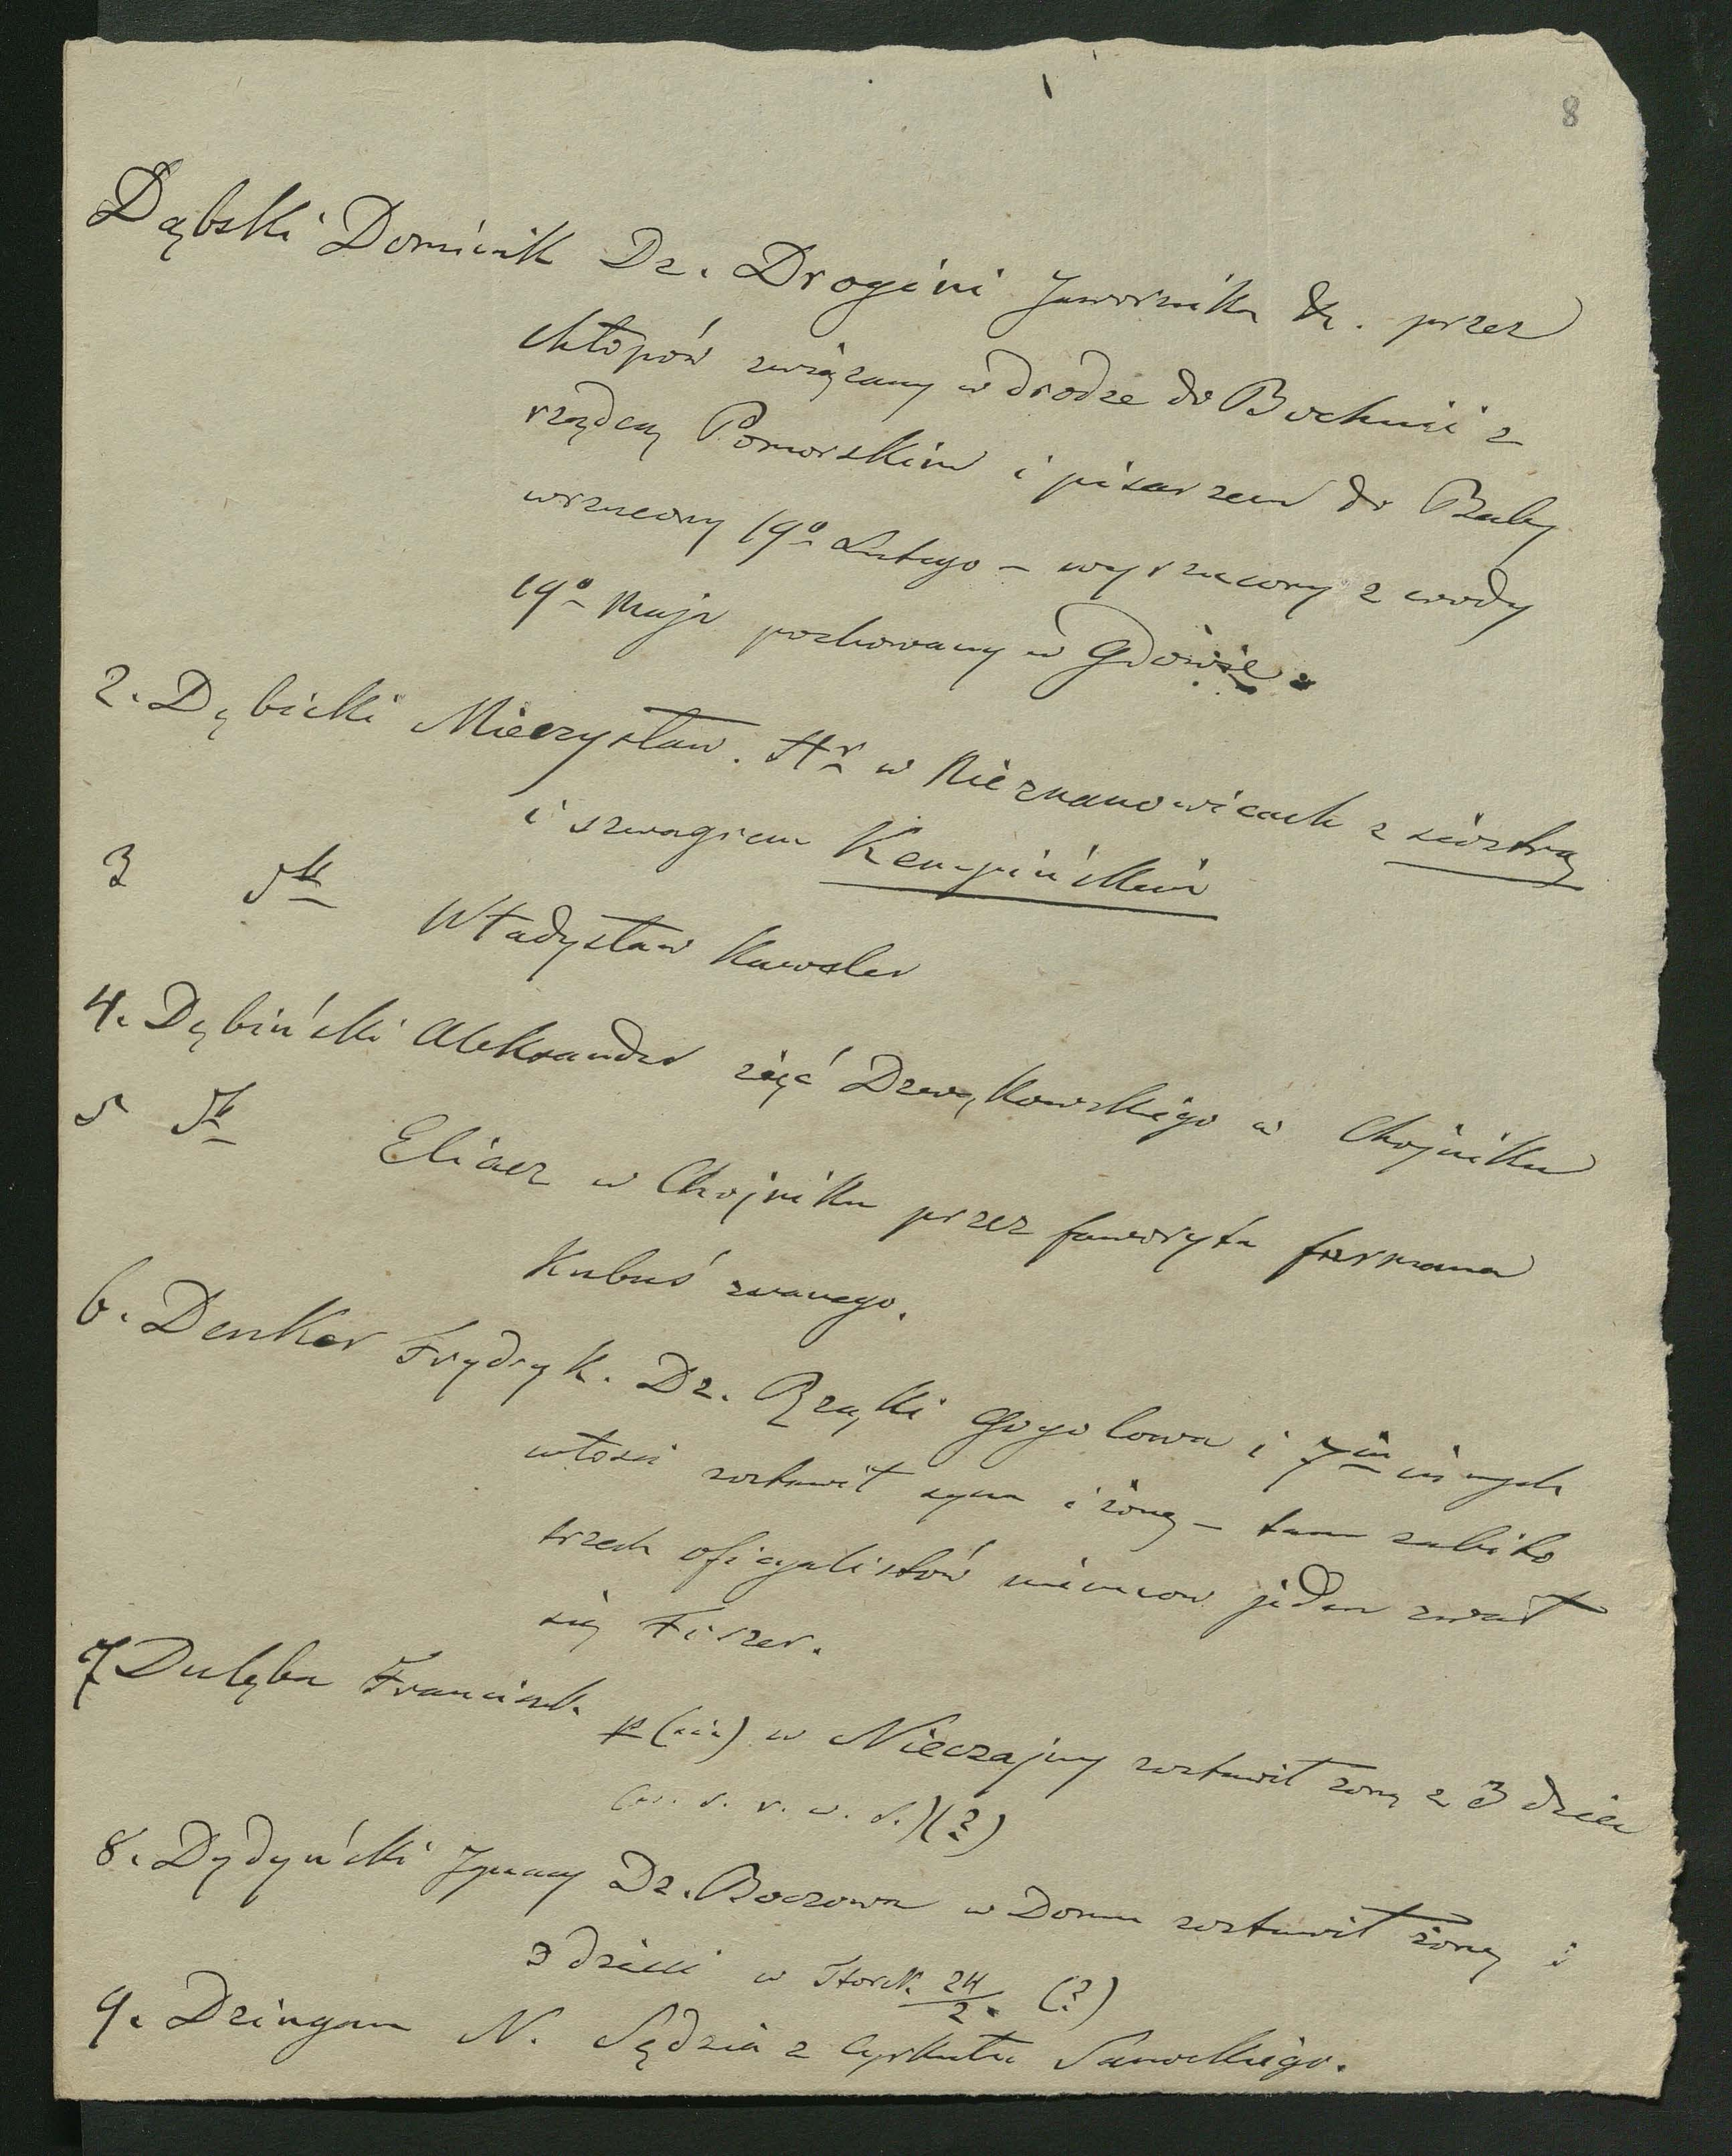 8
Dąbski Dominik Dz. Drogini Jawornika &. przez
chłopów związany w drodze do Bochnii z
rządcą Pomorskim i pisarzem do Raby
wrzucony 19º Lutego – wyrzucony z wody
19º Maja pochowany w Gdowie.
2. Dębicki Mieczysław. Hr w Nieznanowicach z siostrą
i szwagrem Kempińskim
3 Władysław Kawaler
4. Dębiński Aleksander zięć Drewękowskiego w Chojniku
5 Eliasz w Chojniku przez faworyta furmana
Kubuś zwanego.
6. Denker Frydryk. Dz. Rząki Gogolowa i 7iu innych
włości zostawił syna i żonę – tam zabito
trzech oficyalistów niemcow jeden zwał
się Fiszer.
7 Dulęba Franciszek w Nieczajny zostawił żonę z 3 dzieci
(?)
8. Dydyński Ignacy Dz. Boczowa w Domu zostawił żonę i
3 dzieci w 24/2. (?)
9. Dzingan N. Sędzia z Cyrkułu Sanockiego.